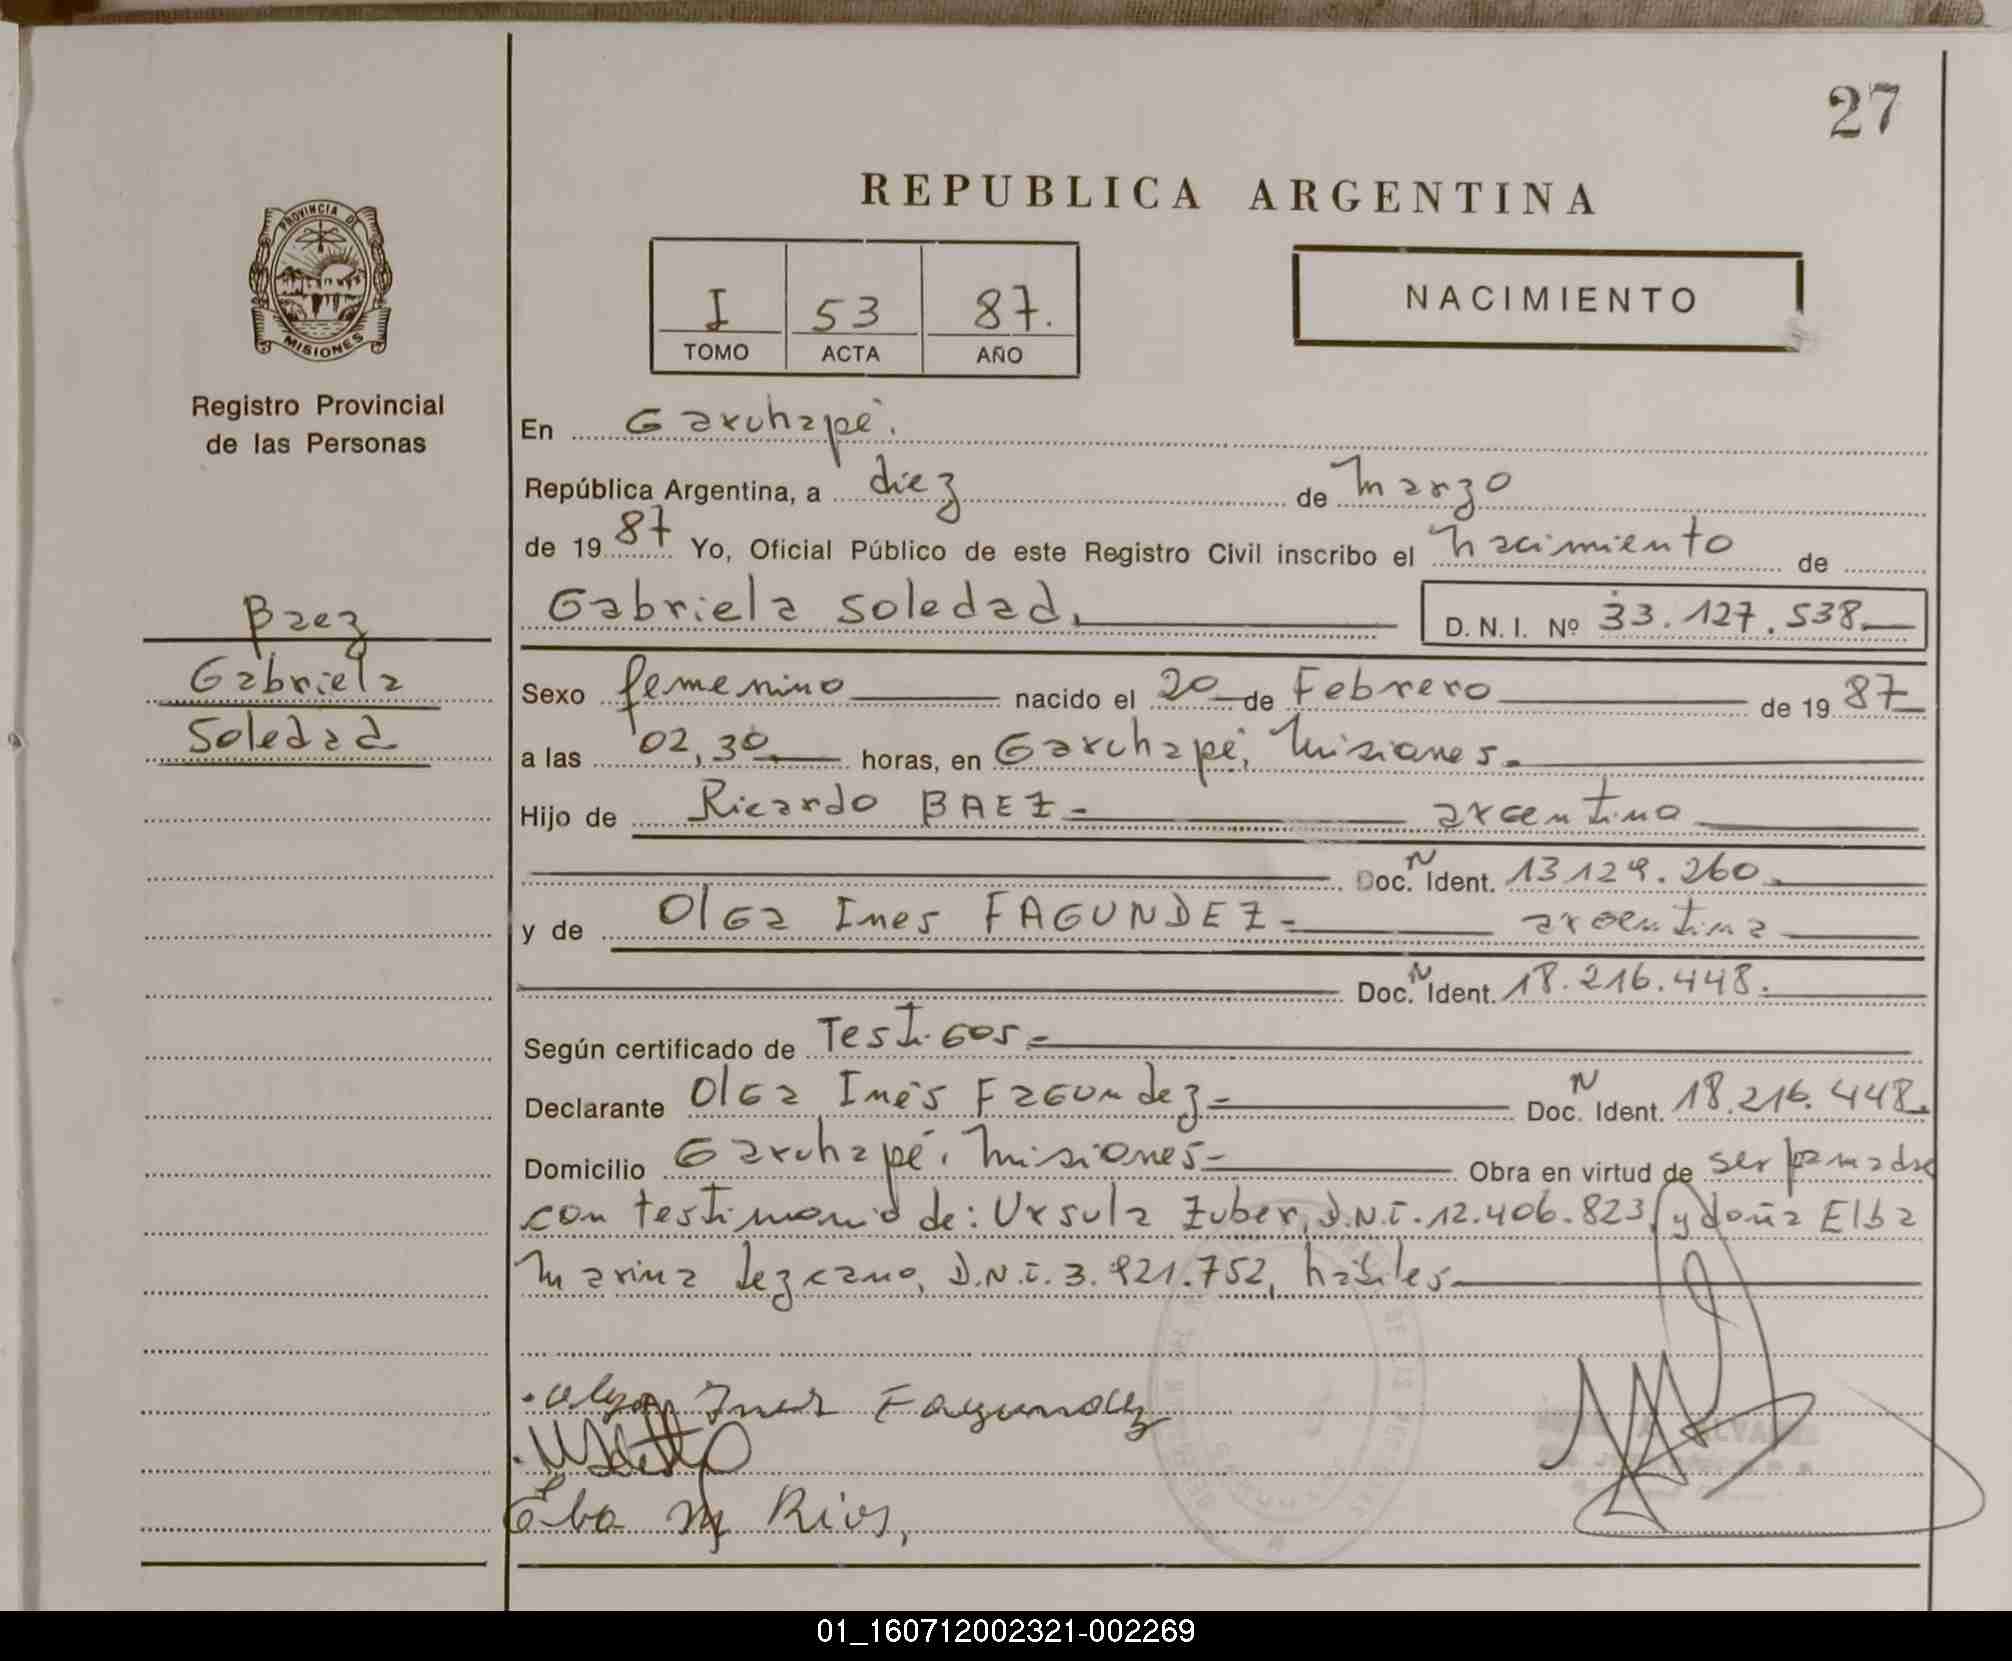 27
REPUBLICA ARGENTINA
PROVINCIA DE
MISIONES
Registro Provincial
de las Personas
I 53 87.
TOMO ACTA AÑO
NACIMIENTO
Baez
Gabriela
Soledad
En Garuhapé.
República Argentina, a diez de Marzo
de 1987 Yo, Oficial Público de este Registro Civil inscribo el nacimiento de
Gabriela Soledad. D. N. I. Nº 33.127.538.
Sexo femenino nacido el 20 de Febrero de 1987
a las 02,30 horas, en Garuhapé, Misiones.
Hijo de Ricardo BAEZ - argentino
Doc. N Ident. 13.129.260.
y de Olga Ines FAGUNDEZ - argentina
Doc. N Ident. 18.216.448.
Según certificado de Testigos -
Declarante Olga Inés Fagundez - Doc. N Ident. 18.216.448.
Domicilio Garuhapé. Misiones - Obra en virtud de ser madre
con testimonio de: Ursula Zuber, D.N.I. 12.406.823, y doña Elba
Marina Lezcano, D.N.I. 3.921.752, hábiles
Olga Ines Fagundez
Elba M Rios,
01_160712002321-002269